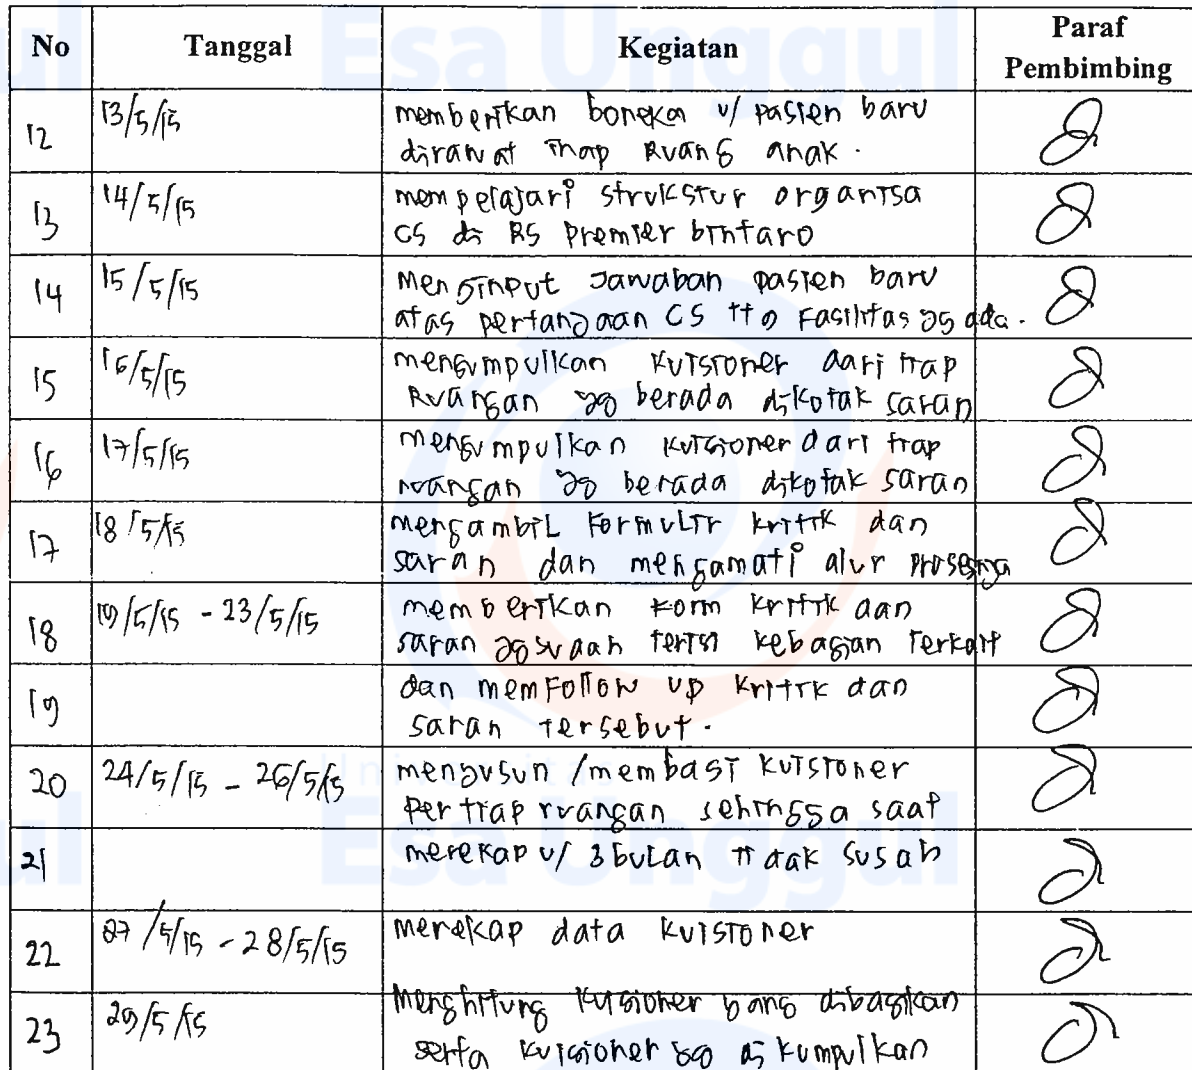 No Tanggal Kegiatan Paraf Pembimbing
12 13/5/15 memberikan boneka u/ pasien baru
dirawat inap Ruang anak.
13 14/5/15 mempelajari strukstur organisa
CS di RS Premier bintaro
14 15/5/15 menginput Jawaban pasien baru
atas pertanyaan CS ttg Fasilitas yg ada.
15 16/5/15 mengumpulkan Kuisioner dari tiap
Ruangan yg berada dikotak saran
16 17/5/15 mengumpulkan kuisioner dari tiap
ruangan yg berada dikotak saran
17 18/5/15 mengambil Formulir kritik dan
saran dan mengamati alur prosesnya
18 19/5/15 - 23/5/15 memberikan Form kritik dan
saran yg sudah terisi kebagian Terkait
19 dan memFollow up kritik dan
saran tersebut.
20 24/5/15 - 26/5/15 menyusun /membagi kuisioner
per tiap ruangan sehingga saat
21 merekap u/ 3 bulan tidak susah
22 27/5/15 - 28/5/15 merekap data kuisioner
23 29/5/15 Menghitung kuisioner yang dibagikan
serta kuisioner yg di kumpulkan
Esa Unggul
Universitas
Esa Unggul